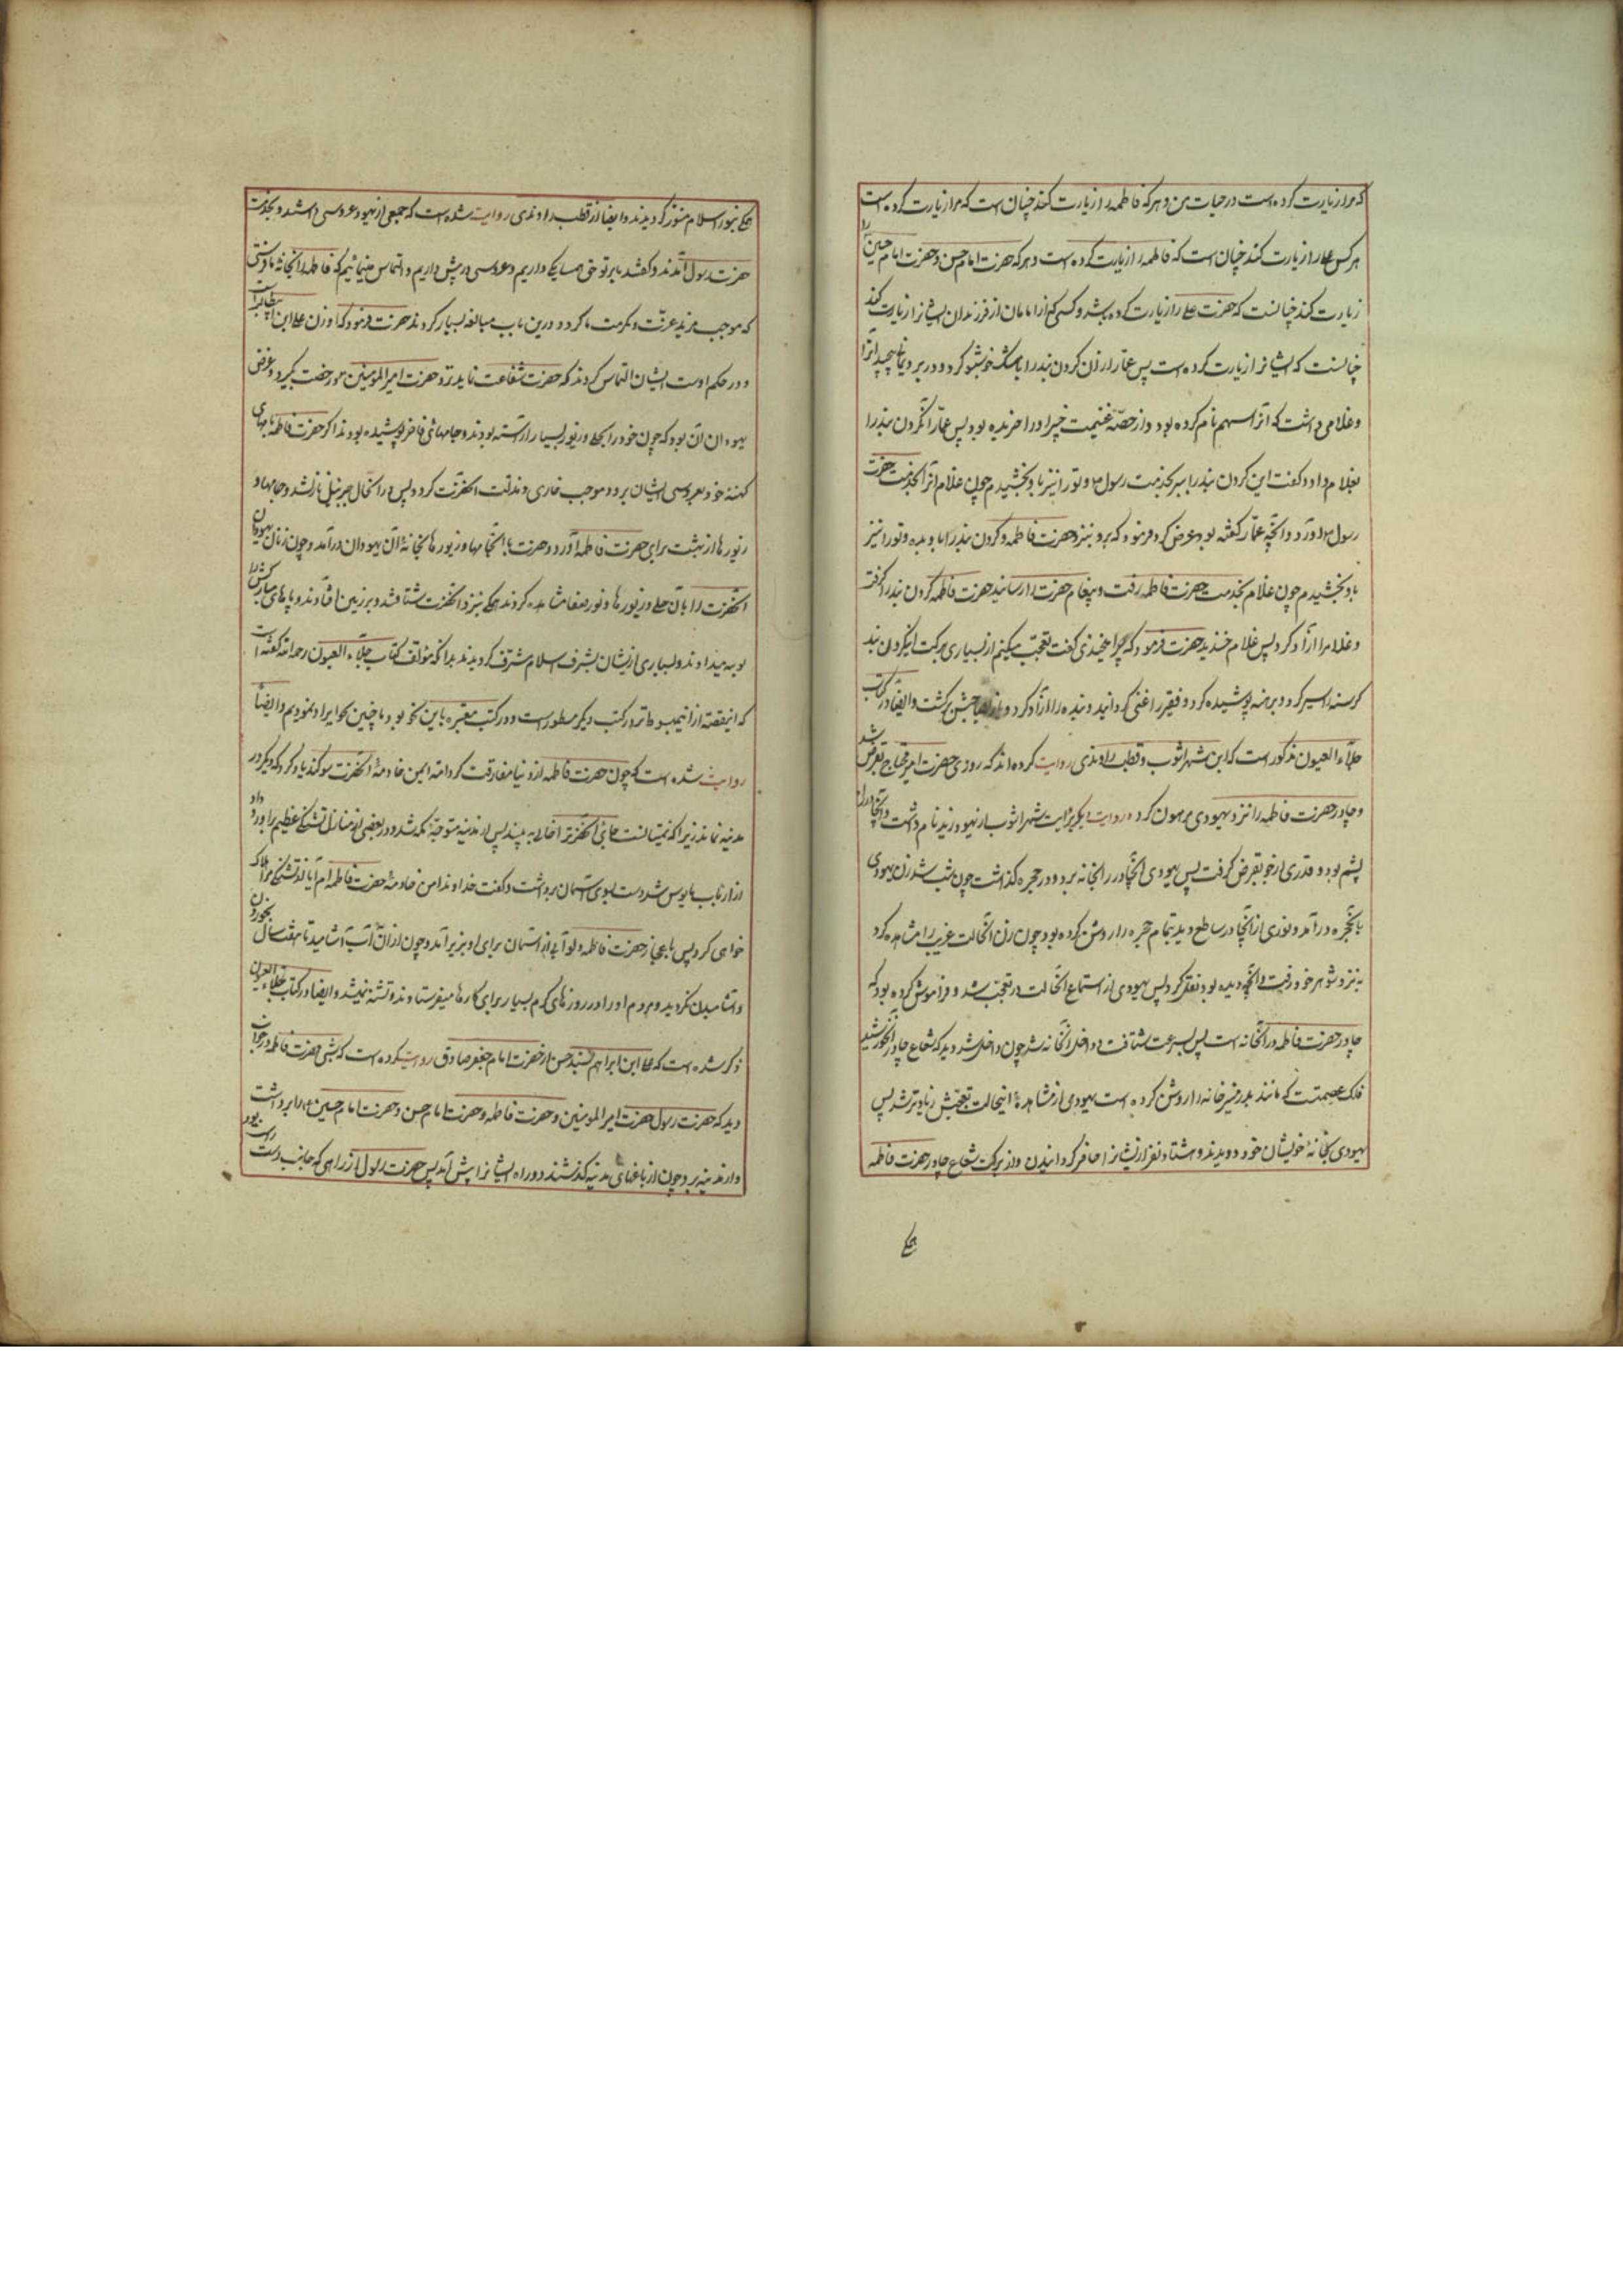 که مرا زیارت کرده است در حیات من و هر که فاطمه را زیارت کند چنان است که مرا زیارت کرده است
هر کس علی را زیارت کند چنان است که فاطمه را زیارت کرده است و هر که حضرت امام حسن و حضرت امام حسین را
زیارت کند چنانست که حضرت علی را زیارت کرده باشد و کسی که از امامان از فرزندان ایشانرا زیارت کند
چنانست که ایشانرا زیارت کرده است پس عمار آن کردن بند را بمشک خوشبو کرد و در برد یمانی پیچید آنرا
و غلامی داشت که آنرا سهم نام کرده بود و از حصهٔ غنیمت خیبر او را خریده بود پس عمار آنکردن بند را
بغلام داد و کفت این کردن بند را ببر بخدمت رسول و تو را نیز باو بخشیدم چون غلام آنرا بخدمت حضرت
رسول آورد و آنچه عمار کفته بود عرض کرد فرمود که برو بنزد حضرت فاطمه و کردن بند را باو بده و تو را نیز
باو بخشیدم چون غلام بخدمت حضرت فاطمه رفت و پیغام حضرت را رسانید حضرت فاطمه کردن بند را کرفت
و غلام را آزاد کرد پس غلام خندید حضرت فرمود که چرا میخندی کفت تعجب میکنم از بسیاری برکت اینکردن بند
کرسنه را سیر کرد و برهنه پوشیده کرد و فقیر را غنی کردانید و بنده را آزاد کرد و باز بصاحبش برکشت و ایضا در کتاب
جلاء العیون مذکور است که ابن شهر اشوب و قطب راوندی روایت کرده‌اند که روزی حضرت امیر محتاج بقرض شد
و چادر حضرت فاطمه را نزد یهودی مرهون کرد و روایت دیکر بروایت شهر اشوب از یهود زید نام داشت و آنچادر از
پشم بود و قدری از جو بقرض کرفت پس یهودی آنچادر را بخانه برد و در حجره کذاشت چون شب شد زن یهودی
بانحجره در آمد و نوری از آنچادر ساطع دید که تمام حجره را روشن کرده بود چون زن آنحالت غریب را مشاهده کرد
به نزد شوهر خود رفت و آنچه دیده بود نقل کرد پس یهودی از استماع آنحالت در تعجب شد و فراموش کرده بود که
چادر حضرت فاطمه در آنخانه است پس بسرعت شتافت و داخل آنخانه شد چون داخل شد دید که شعاع چادر آنخورشید
فلک عصمتست که مانند بدر منیر خانه را روشن کرده است یهودی از مشاهدهٔ اینحالت تعجبش زیادتر شد پس
یهودی بخانهٔ خویشان خود دوید و هشتاد نفر از ایشانرا حاضر کردانیدن و از برکت شعاع چادر حضرت فاطمه
همکی
همکی بنور اسلام منور کردیدند و ایضا از قطب راوندی روایت شده است که جمعی از یهود عروسی داشتند و بخدمت
حضرت رسول آمدند و کفتند ما بر تو حق همسایکی داریم و عروسی در پیش داریم و التماس مینمائیم که فاطمه را بخانهٔ ما فرستی
که موجب مزید عزت و مکرمت ما کردد و درین باب مبالغه بسیار کردند حضرت فرمود که او زن علی ابن ابیطالب است
و در حکم اوست ایشان التماس کردند که حضرت شفاعت نماید نزد حضرت امیر المومنین رخصت بکیرد و غرض
یهودان آن بود که چون خود را بحلی و زیور بسیار آراسته بودند و جامهای فاخر پوشیده بودند اکر حضرت فاطمه با جامهای
کهنهٔ خود بعروسی ایشان برود موجب خاری و مذلت آنحضرت کردد پس در آنحال جبرئیل نازل شد و جامها و
زیورها از بهشت برای حضرت فاطمه آورد و حضرت با آنجامها و زیورها بخانهٔ آن یهودان درآمد و چون زنان یهودان
آنحضرت را بآن حلی و زیورها و نور صفا مشاهده کردند همکی بنزد آنحضرت شتافتند و بر زمین افتادند و پاهای مبارکش را
بوسه میدادند و بسیاری از ایشان بشرف اسلام مشرف کردیدند بدانکه مؤلف کتاب جلاء العیون رحمه الله کفته است
که اینقصه از این مبسوط‌تر در کتب دیکر مسطور است و در کتب معتبره باین نحو بود ما چنین نحو ایراد نمودیم و ایضا
روایت شده است که چون حضرت فاطمه از دنیا مفارقت کرد ام ایمن خادمهٔ آنحضرت سوکند یاد کرد که دیکر در
مدینه نماند زیرا که نمیتوانست جای آنحضرترا خالی به بیند پس از مدینه متوجه مکه شد و در بعضی از منازل تشنکی عظیم باو رو داد
از آب مایوس شد دست بسوی آسمان برداشت و کفت خداوندا من خادمهٔ حضرت فاطمه‌ام آیا از تشنکی مرا هلاک
خواهی کرد پس باعجاز حضرت فاطمه دلو آبی از آسمان برای او بزیر آمد و چون از آن آب آشامید تا هفت سال بخوردن
و آشامیدن نکردید و مردم او را در روزهای کرم بسیار برای کارها میفرستادند و تشنه نمیشد و ایضا در کتاب جلاء العیون
ذکر شده است که علی ابن ابراهیم بسند حسن از حضرت امام جعفر صادق روایت کرده است که شبی حضرت فاطمه در خواب
دید که حضرت رسول حضرت امیر المومنین و حضرت فاطمه و حضرت امام حسن و حضرت امام حسین را برداشت
و از مدینه برد چون از باغهای مدینه کذشتند دو راه ایشانرا پیش آمد پس حضرت رسول از راهی که جانب دست راست بود